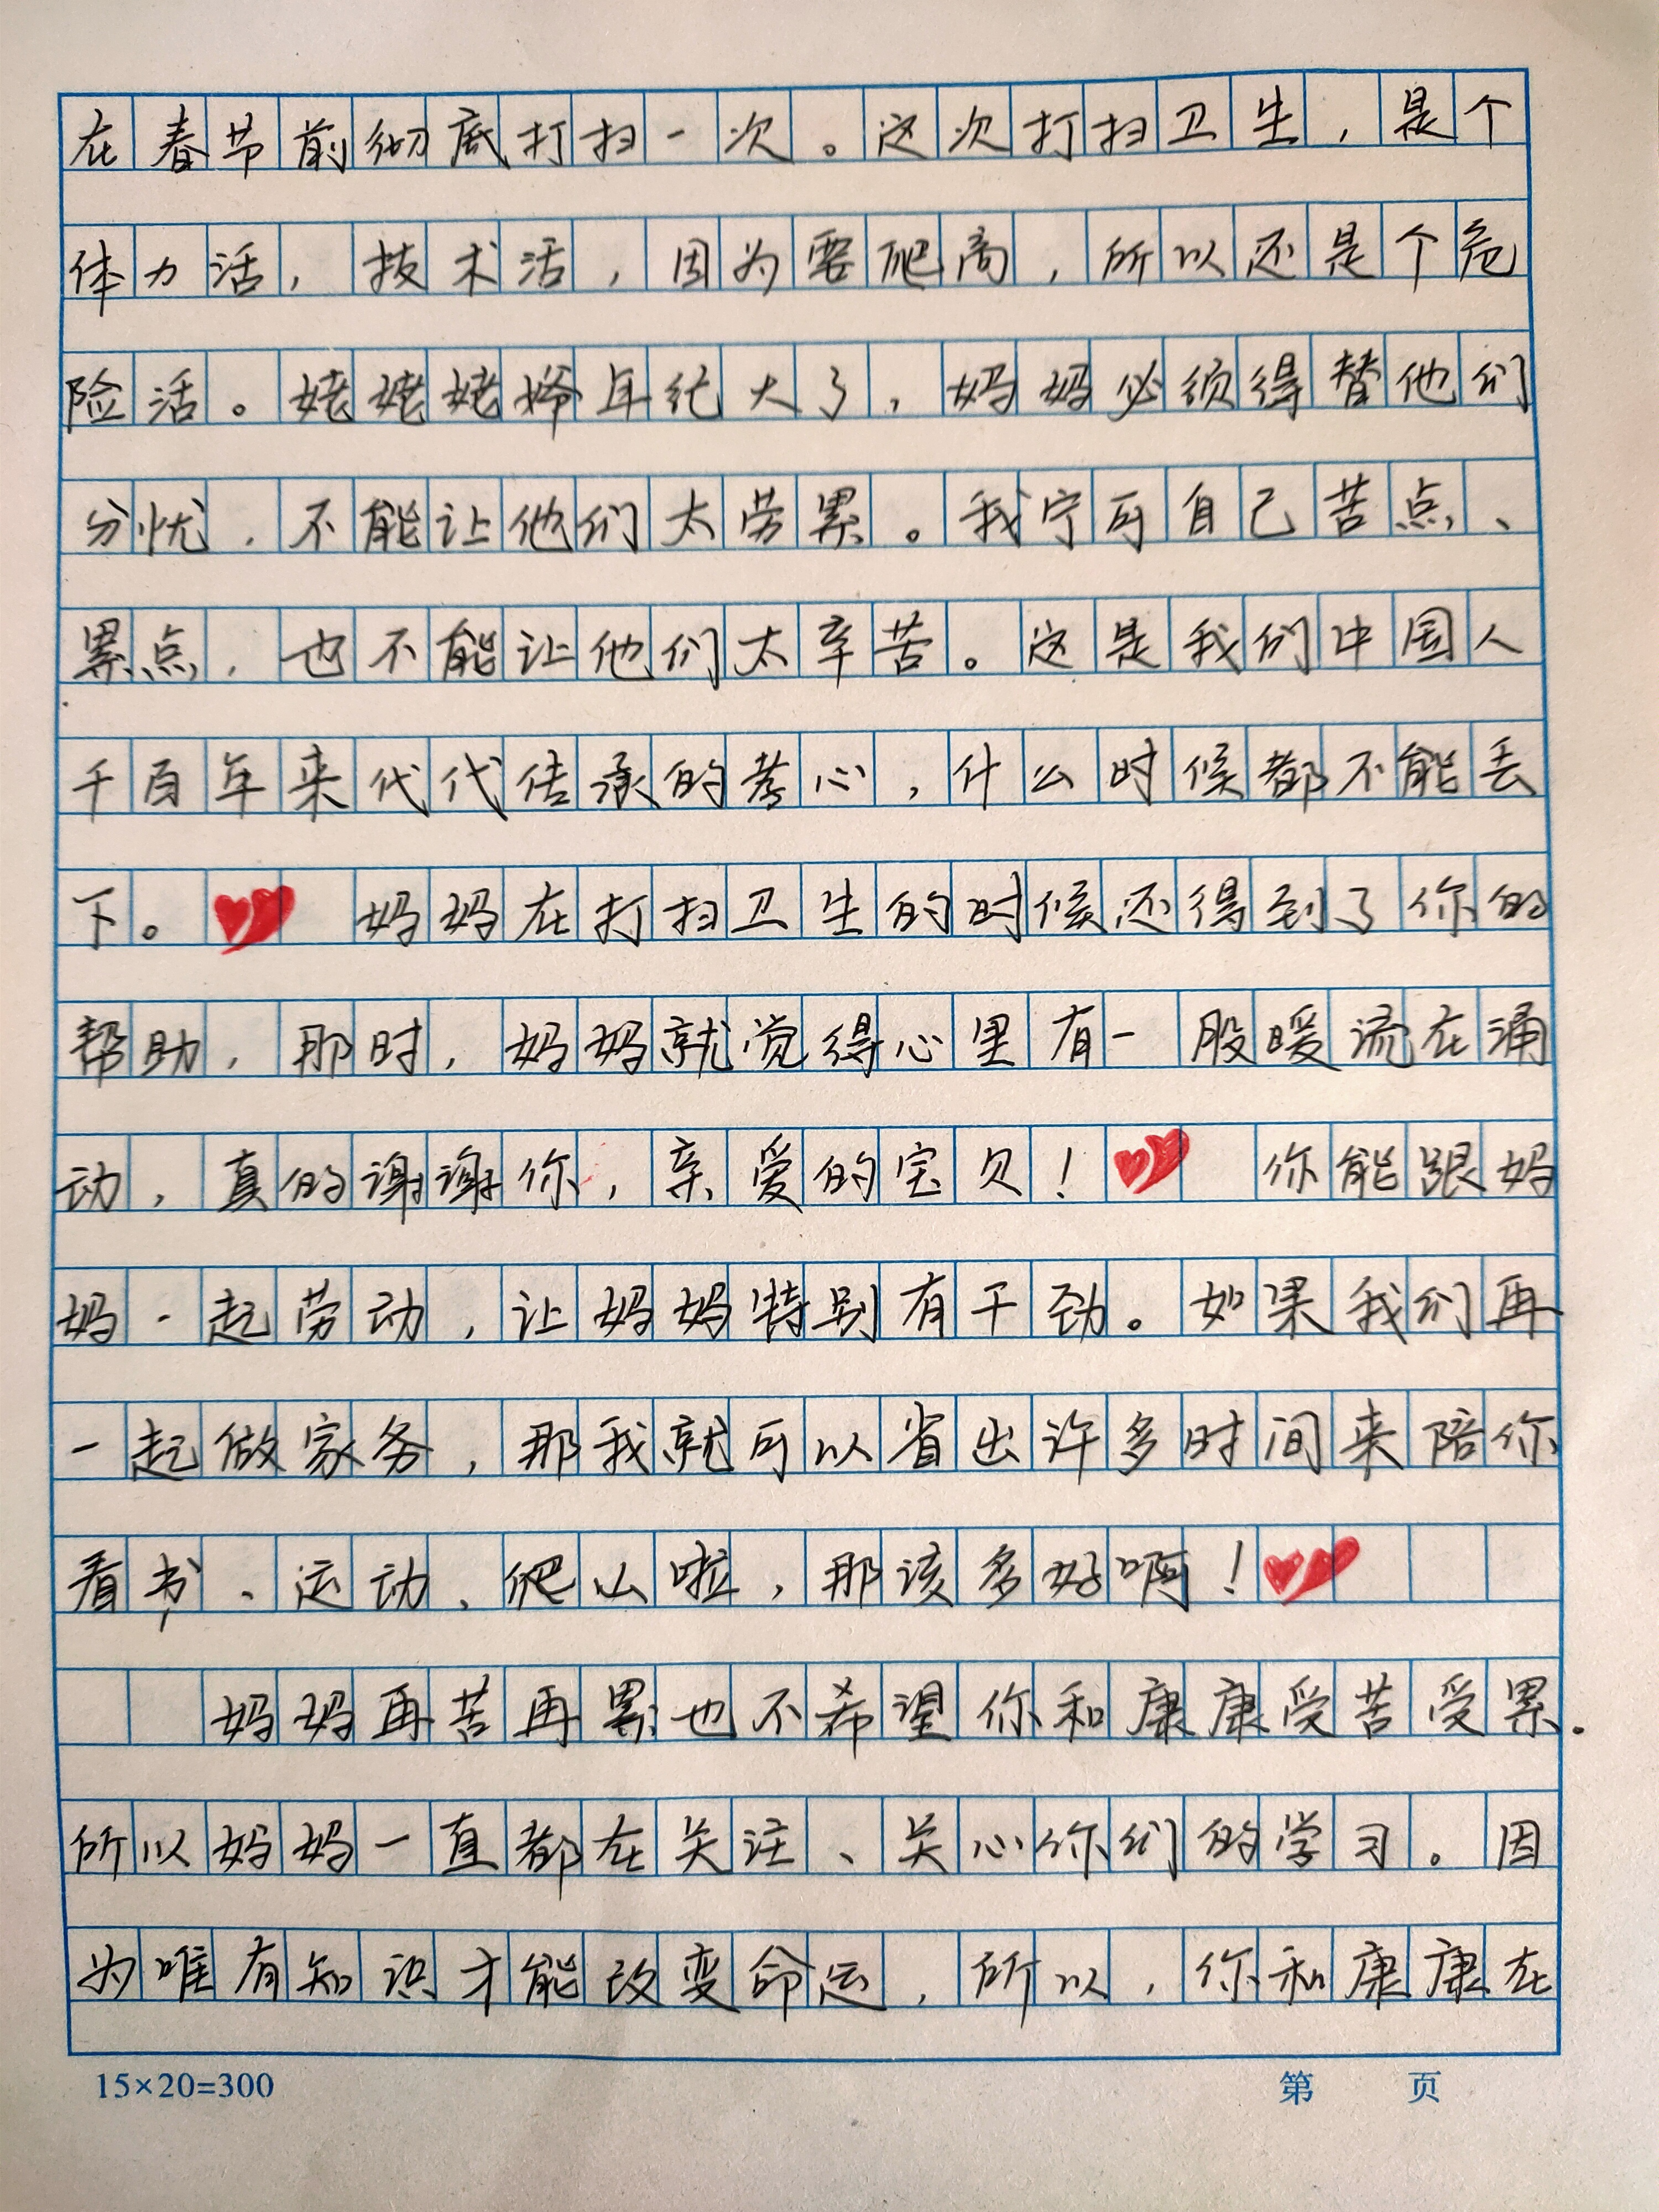 在春节前彻底打扫一次。这次打扫卫生，是个
体力活，技术活，因为要爬高，所以还是个危
险活。姥姥姥爷年纪大了，妈妈必须得替他们
分忧，不能让他们太劳累。我宁可自己苦点、
累点，也不能让他们太辛苦。这是我们中国人
千百年来代代传承的孝心，什么时候都不能丢
下。 妈妈在打扫卫生的时候还得到了你的
帮助，那时，妈妈就觉得心里有一股暖流在涌
动，真的谢谢你，亲爱的宝贝！ 你能跟妈
妈一起劳动，让妈妈特别有干劲。如果我们再
一起做家务，那我就可以省出许多时间来陪你
看书、运动、爬山啦，那该多好啊！
妈妈再苦再累也不希望你和康康受苦受累.
所以妈妈一直都在关注、关心你们的学习。因
为唯有知识才能改变命运，所以，你和康康在
15×20=300 第 页